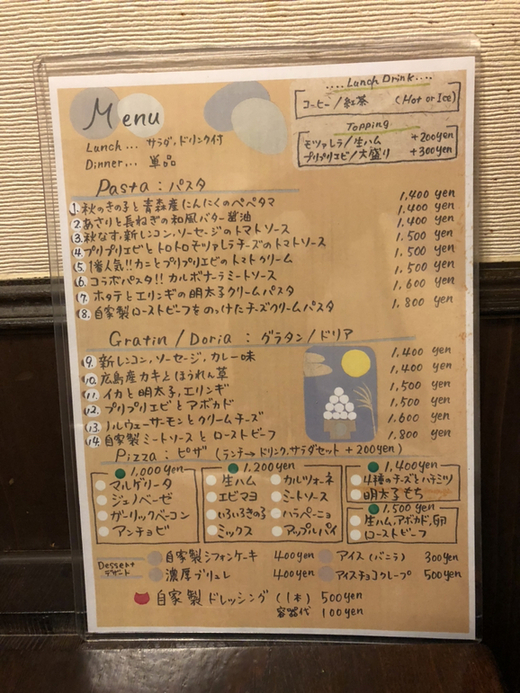 Menu
Lunch... サラダ,ドリンク付
Dinner... 単品
....Lunch Drink....
コーヒー/紅茶 (Hot or Ice)
Topping
モツァレラ/生ハム +200yen
プリプリエビ/大盛り +300yen
Pasta : パスタ
1. 秋のきの子と青森産にんにくのペペタマ 1,400 yen
2. あさりと長ねぎの和風バター醤油 1,400 yen
3. 秋なす,新レンコン,ソーセージのトマトソース 1,400 yen
4. プリプリエビとトロトロモツァレラチーズのトマトソース 1,500 yen
5. 1番人気!! カニとプリプリエビのトマトクリーム 1,500 yen
6. コラボパスタ!! カルボナーラミートソース 1,500 yen
7. ホタテとエリンギの明太子クリームパスタ 1,600 yen
8. 自家製ローストビーフをのっけたチーズクリームパスタ 1,800 yen
Gratin / Doria : グラタン/ドリア
9. 新レンコン,ソーセージ,カレー味 1,400 yen
10. 広島産カキとほうれん草 1,400 yen
11. イカと明太子,エリンギ 1,500 yen
12. プリプリエビとアボカド 1,500 yen
13. ノルウェーサーモンとクリームチーズ 1,600 yen
14. 自家製ミートソースとローストビーフ 1,800 yen
Pizza : ピザ (ランチ→ドリンク,サラダセット +200yen)
1,000yen
マルゲリータ
ジェノベーゼ
ガーリックベーコン
アンチョビ
1,200yen
生ハム カルツォーネ
エビマヨ ミートソース
いろいろきの子 ハラペーニョ
ミックス アップルパイ
1,400yen
4種のチーズとハチミツ
明太子もち
1,500yen
生ハム,アボカド,卵
ローストビーフ
Dessert デザート
自家製シフォンケーキ 400yen アイス(バニラ) 300yen
濃厚ブリュレ 400yen アイスチョコクレープ 500yen
自家製ドレッシング (1本) 500yen
容器代 100yen